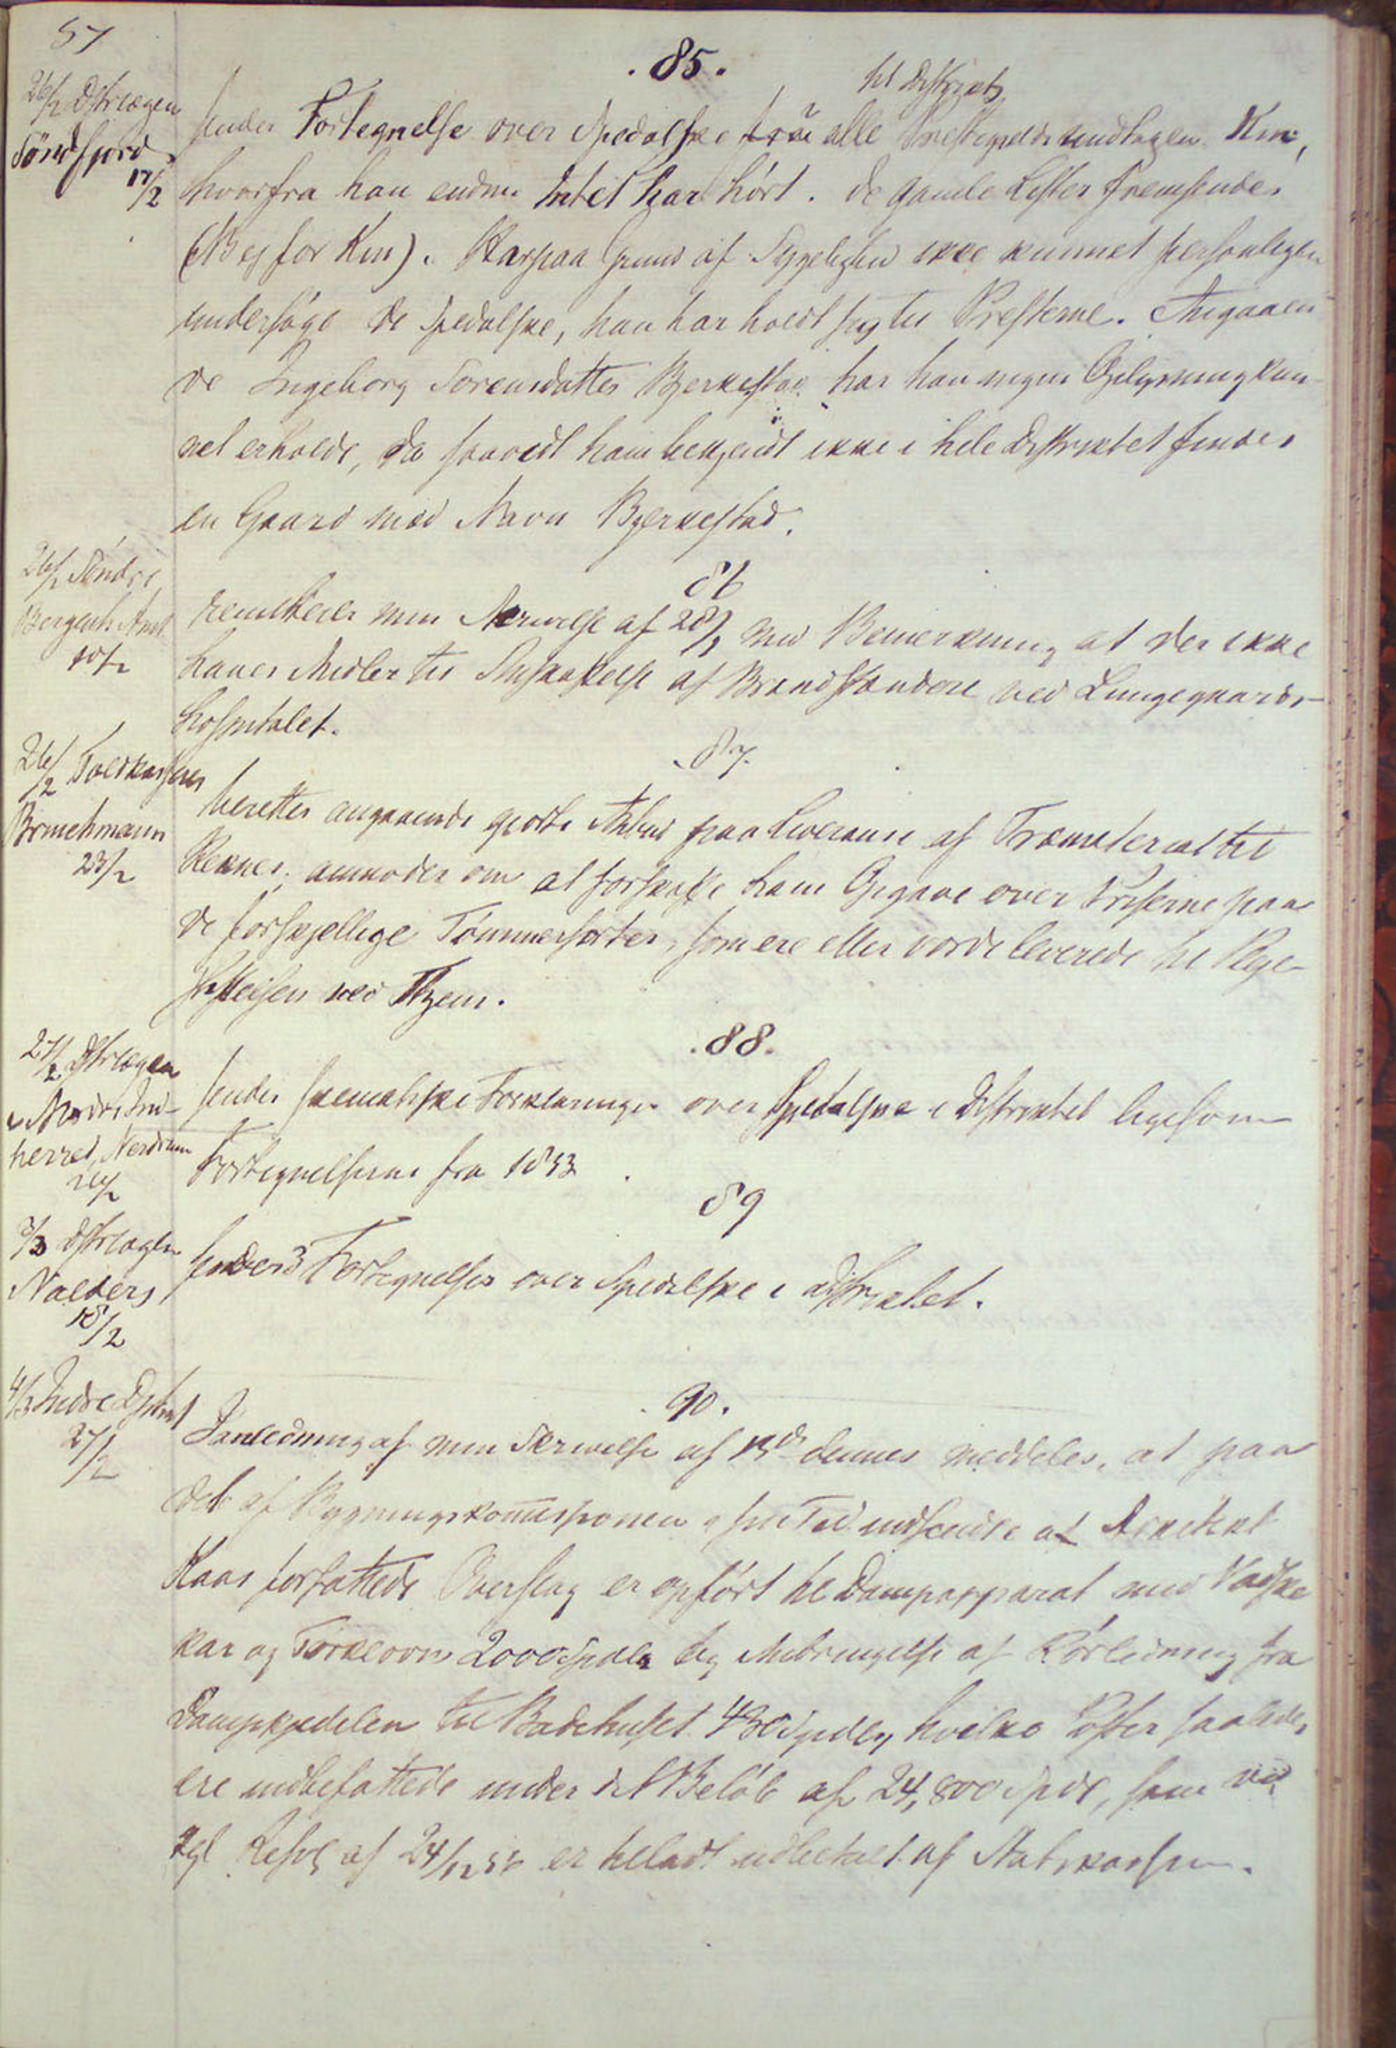 57
.85.
26/2 Dstrlægen
Søndfjord
17/2
til Distriktets
sender Fortegnelse over Spedalske fra alle Prestegjelde undtagen Kin,
hvorfra han endnu Intet har hørt. De gamle Lister fremsendes
(Nei for Kin). Har paa Grund af Sygelighed ikke kunnet personligen
undersøge de Spedalske, han har holdt sig til Presterne. Angaaen
de Ingeborg Sørensdatter Bjerkestad har han ingen Oplysning kun
net erholde, da saavidt ham bekjendt ikke i hele Distriktet findes
en Gaard med Navn Bjerkestad.
86
26/2 Søndre
Bergenh Amt
10/2
remitterer min Skrivelse af 28/1 med Bemerkning at der ikke
haves Midler til Anskaffelse af Brandspande ved Lungegaards-
hospitalet.
.87.
26/2 Toldkasserer
Bruchmann
23/2
beretter angaaende gjorte Anbud paa Leverance af Træmaterial til
Reknes; anmoder om at forskaffe ham Opgave over Priserne paa
de forskjellige Tømmersorter, som ere eller vorde leverede til Pleje-
stiftelsen ved Thjem.
.88.
27/2 Dstrlægen
i Nordre Ind-
herred,
24/2
sender skematiske Forklaringer over Spedalske i Distriktet ligesom
Fortegnelserne fra 1853.
89
3/3 Dstrlægen
Valders
18/2
sender 3 Fortegnelser over Spedalske i distriktet.
90.
4/3 Indre Dptmt
27/2
I anledning af min Skrivelse af 13de dennes meddeles, at paa
det af Bygningskommissionen i sin Tid indsendte af Arkitekt
Kaas forfattede Overslag er opført til Dampapparat med Vadske
kar og Tørkeovn 2000 Spdlr og Anbringelse af Rørledning fra
Dampkjedelen til Badehuset 430 Spdlr, hvilke Poster saaledes
ere indbefattede under det Beløb af 24,800 Spdl, som ved
kgl Resol af 24/12 56 er tilladt udbetalt af Statskassen.